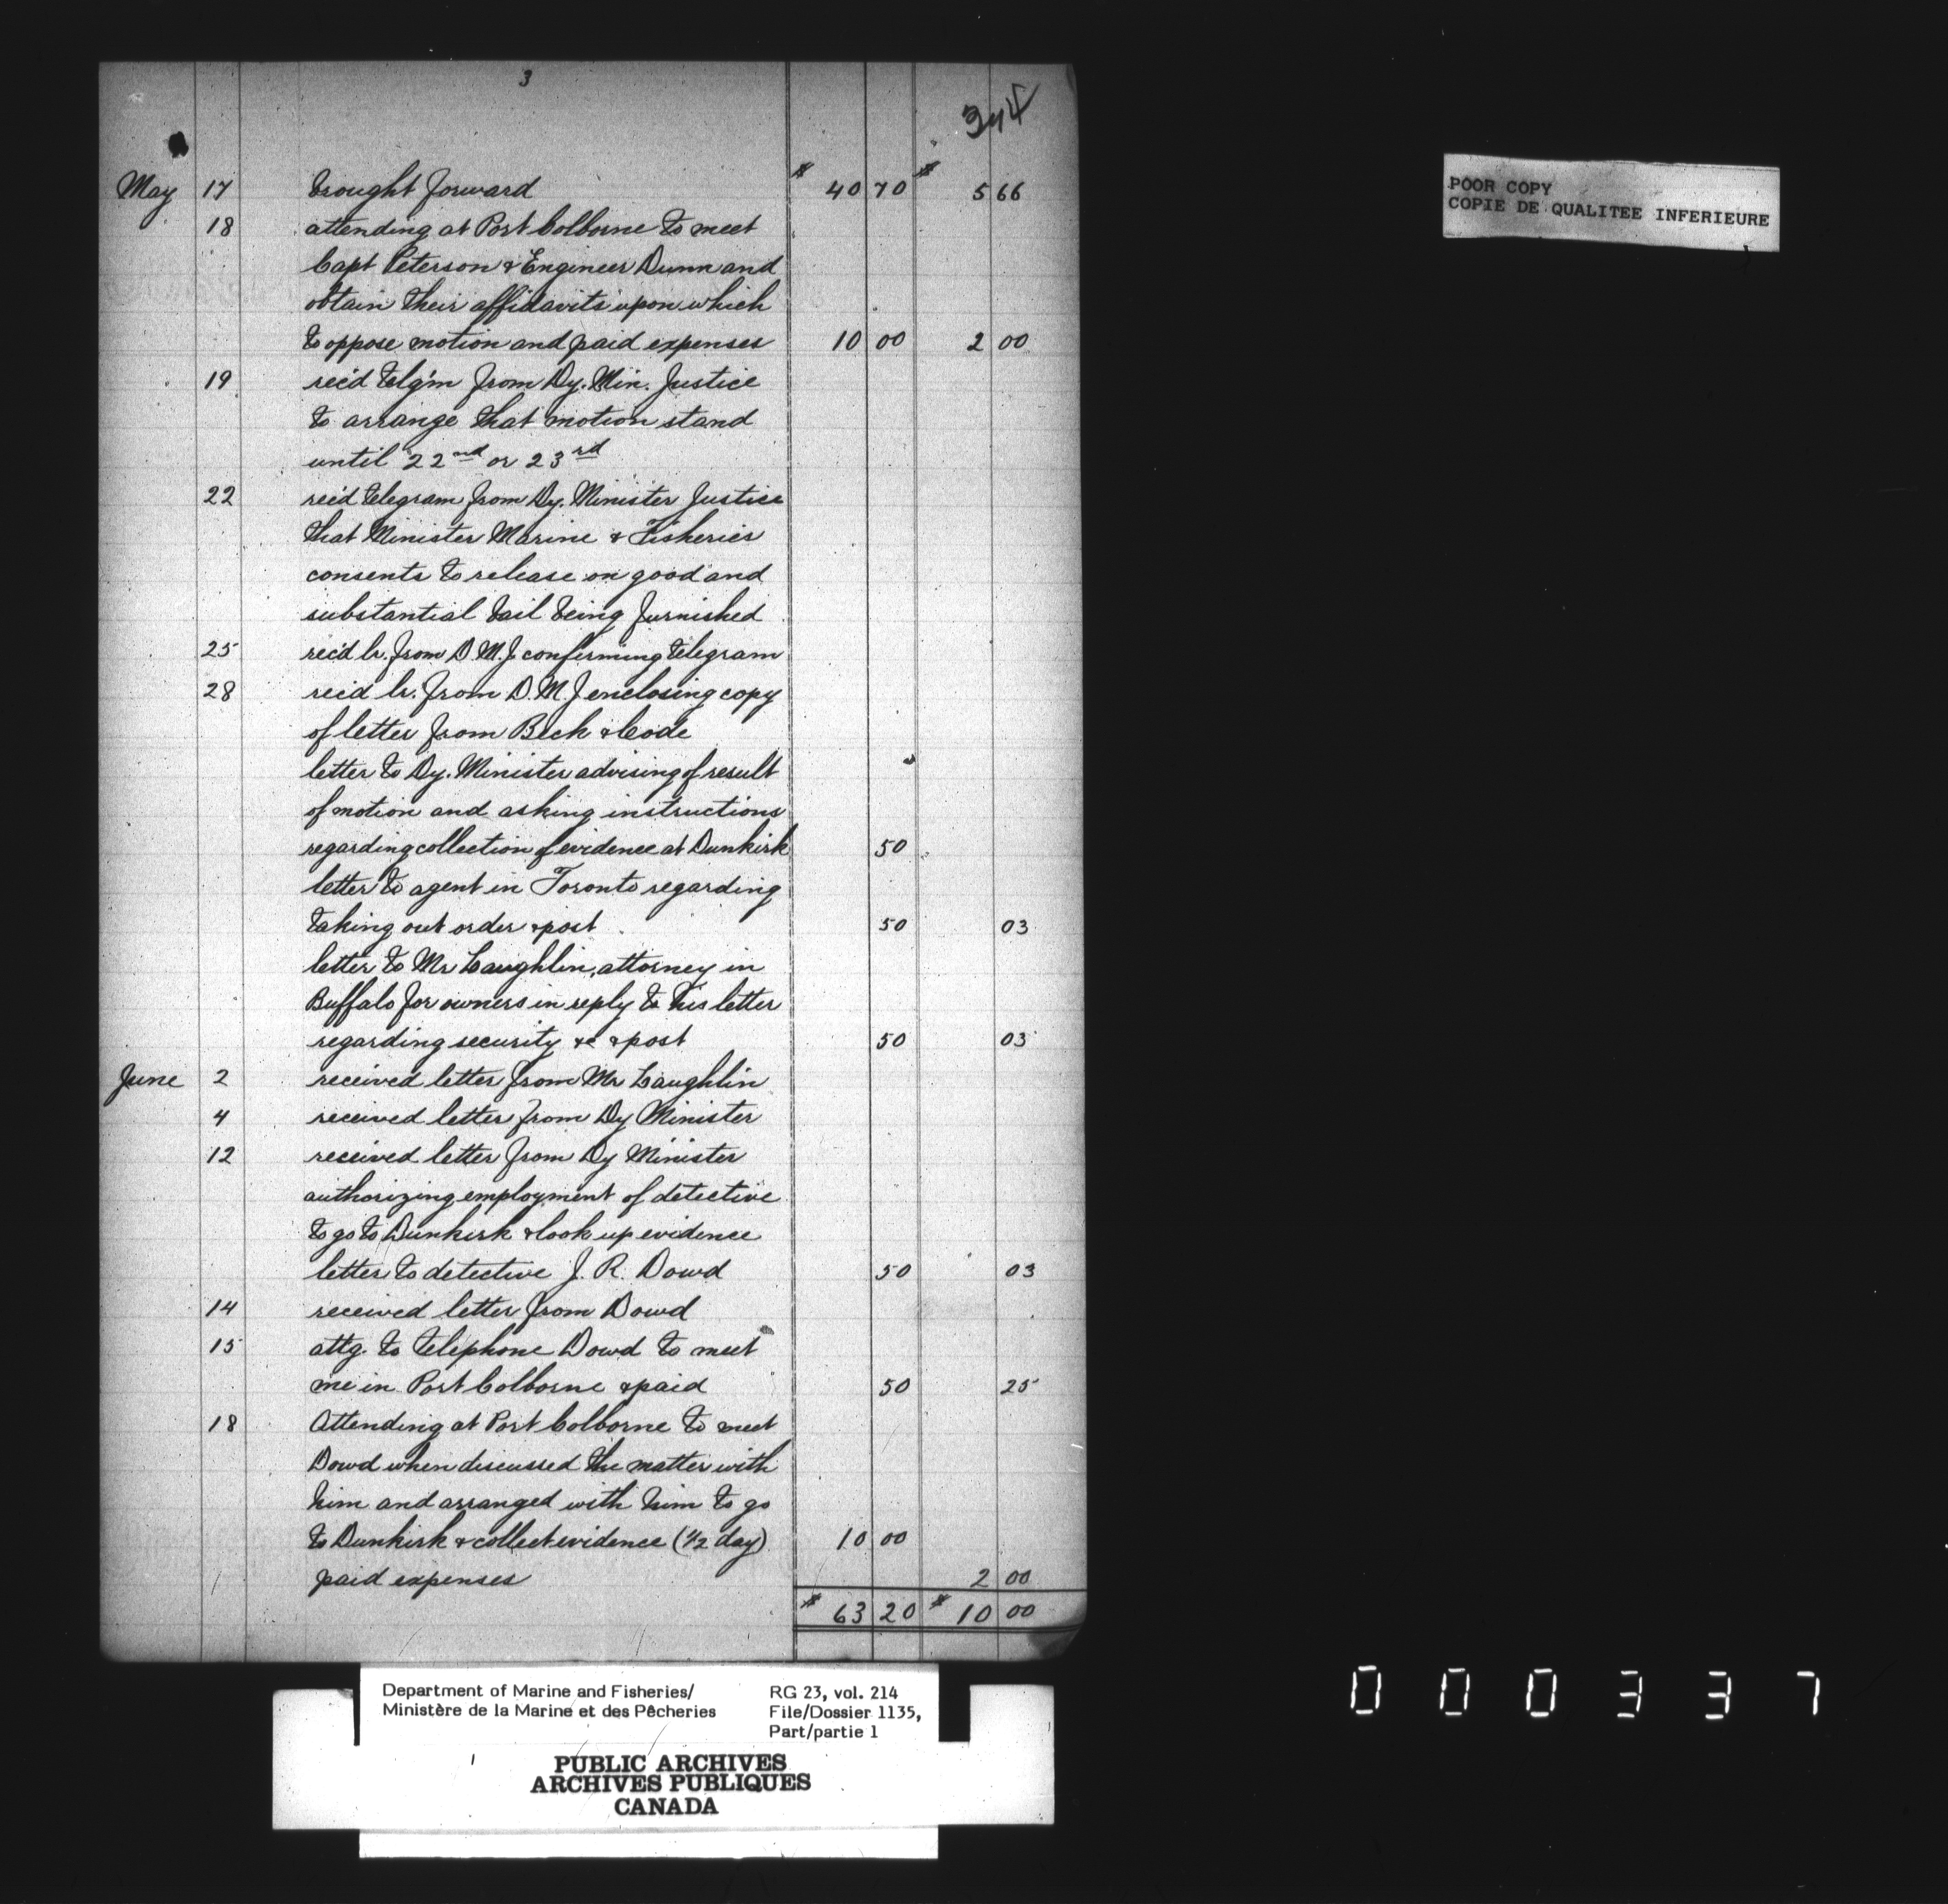 3
344
May 17 brought forward $ 40 70 $ 5 66
18 attending at Port Colborne to meet
Capt Peterson & Engineer Dunn and
obtain their affidavits upon which
to oppose motion and paid expenses 10 00 2 00
19 rec'd telg'm from Dy. Min. Justice
to arrange that motion stand
until 22nd or 23rd
22 rec'd telegram from Dy. Minister Justice
that Minister Marine & Fisheries
consents to release on good and
substantial bail being furnished
25 rec'd lr. from D.M.J. confirming telegram
28 rec'd lr. from D.M.J enclosing copy
of letter from Beck & Code
letter to Dy. Minister advising of result
of motion and asking instructions
regarding collection of evidence at Dunkirk 50
letter to agent in Toronto regarding
taking out order & post 50 03
letter to Mr Laughlin, attorney in
Buffalo for owners in reply to his letter
regarding security &c & post 50 03
June 2 received letter from Mr Laughlin
4 received letter from Dy Minister
12 received letter from Dy Minister
authorizing employment of detective
to go to Dunkirk & look up evidence
letter to detective J. R. Dowd 50 03
14 received letter from Dowd
15 attg. to telephone Dowd to meet
me in Port Colborne & paid 50 25
18 Attending at Port Colborne to meet
Dowd when discussed the matter with
him and arranged with him to go
to Dunkirk & collect evidence (1/2 day) 10 00
paid expenses 2 00
$ 63 20 $ 10 00
POOR COPY
COPIE DE QUALITEE INFERIEURE
Department of Marine and Fisheries/
Ministère de la Marine et des Pêcheries
RG 23, vol. 214
File/Dossier 1135,
Part/partie 1
PUBLIC ARCHIVES
ARCHIVES PUBLIQUES
CANADA
000337